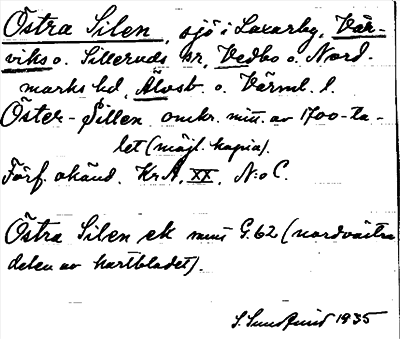 Östra Silen, sjö i Laxarby, Vår-
viks o. Silleruds sr, Vedbo o. Nord-
marks hd, Älvsb. o. Värml. l.
Öster-Sillen omkr. mitt. av 1700-ta-
let (möjl. kopia).
Förf. okänd. Kr.A, XX, N:o C.
Östra Silen ek mms G.62 (nordvästra
delen av kartbladet).
S. Sundqvist 1935